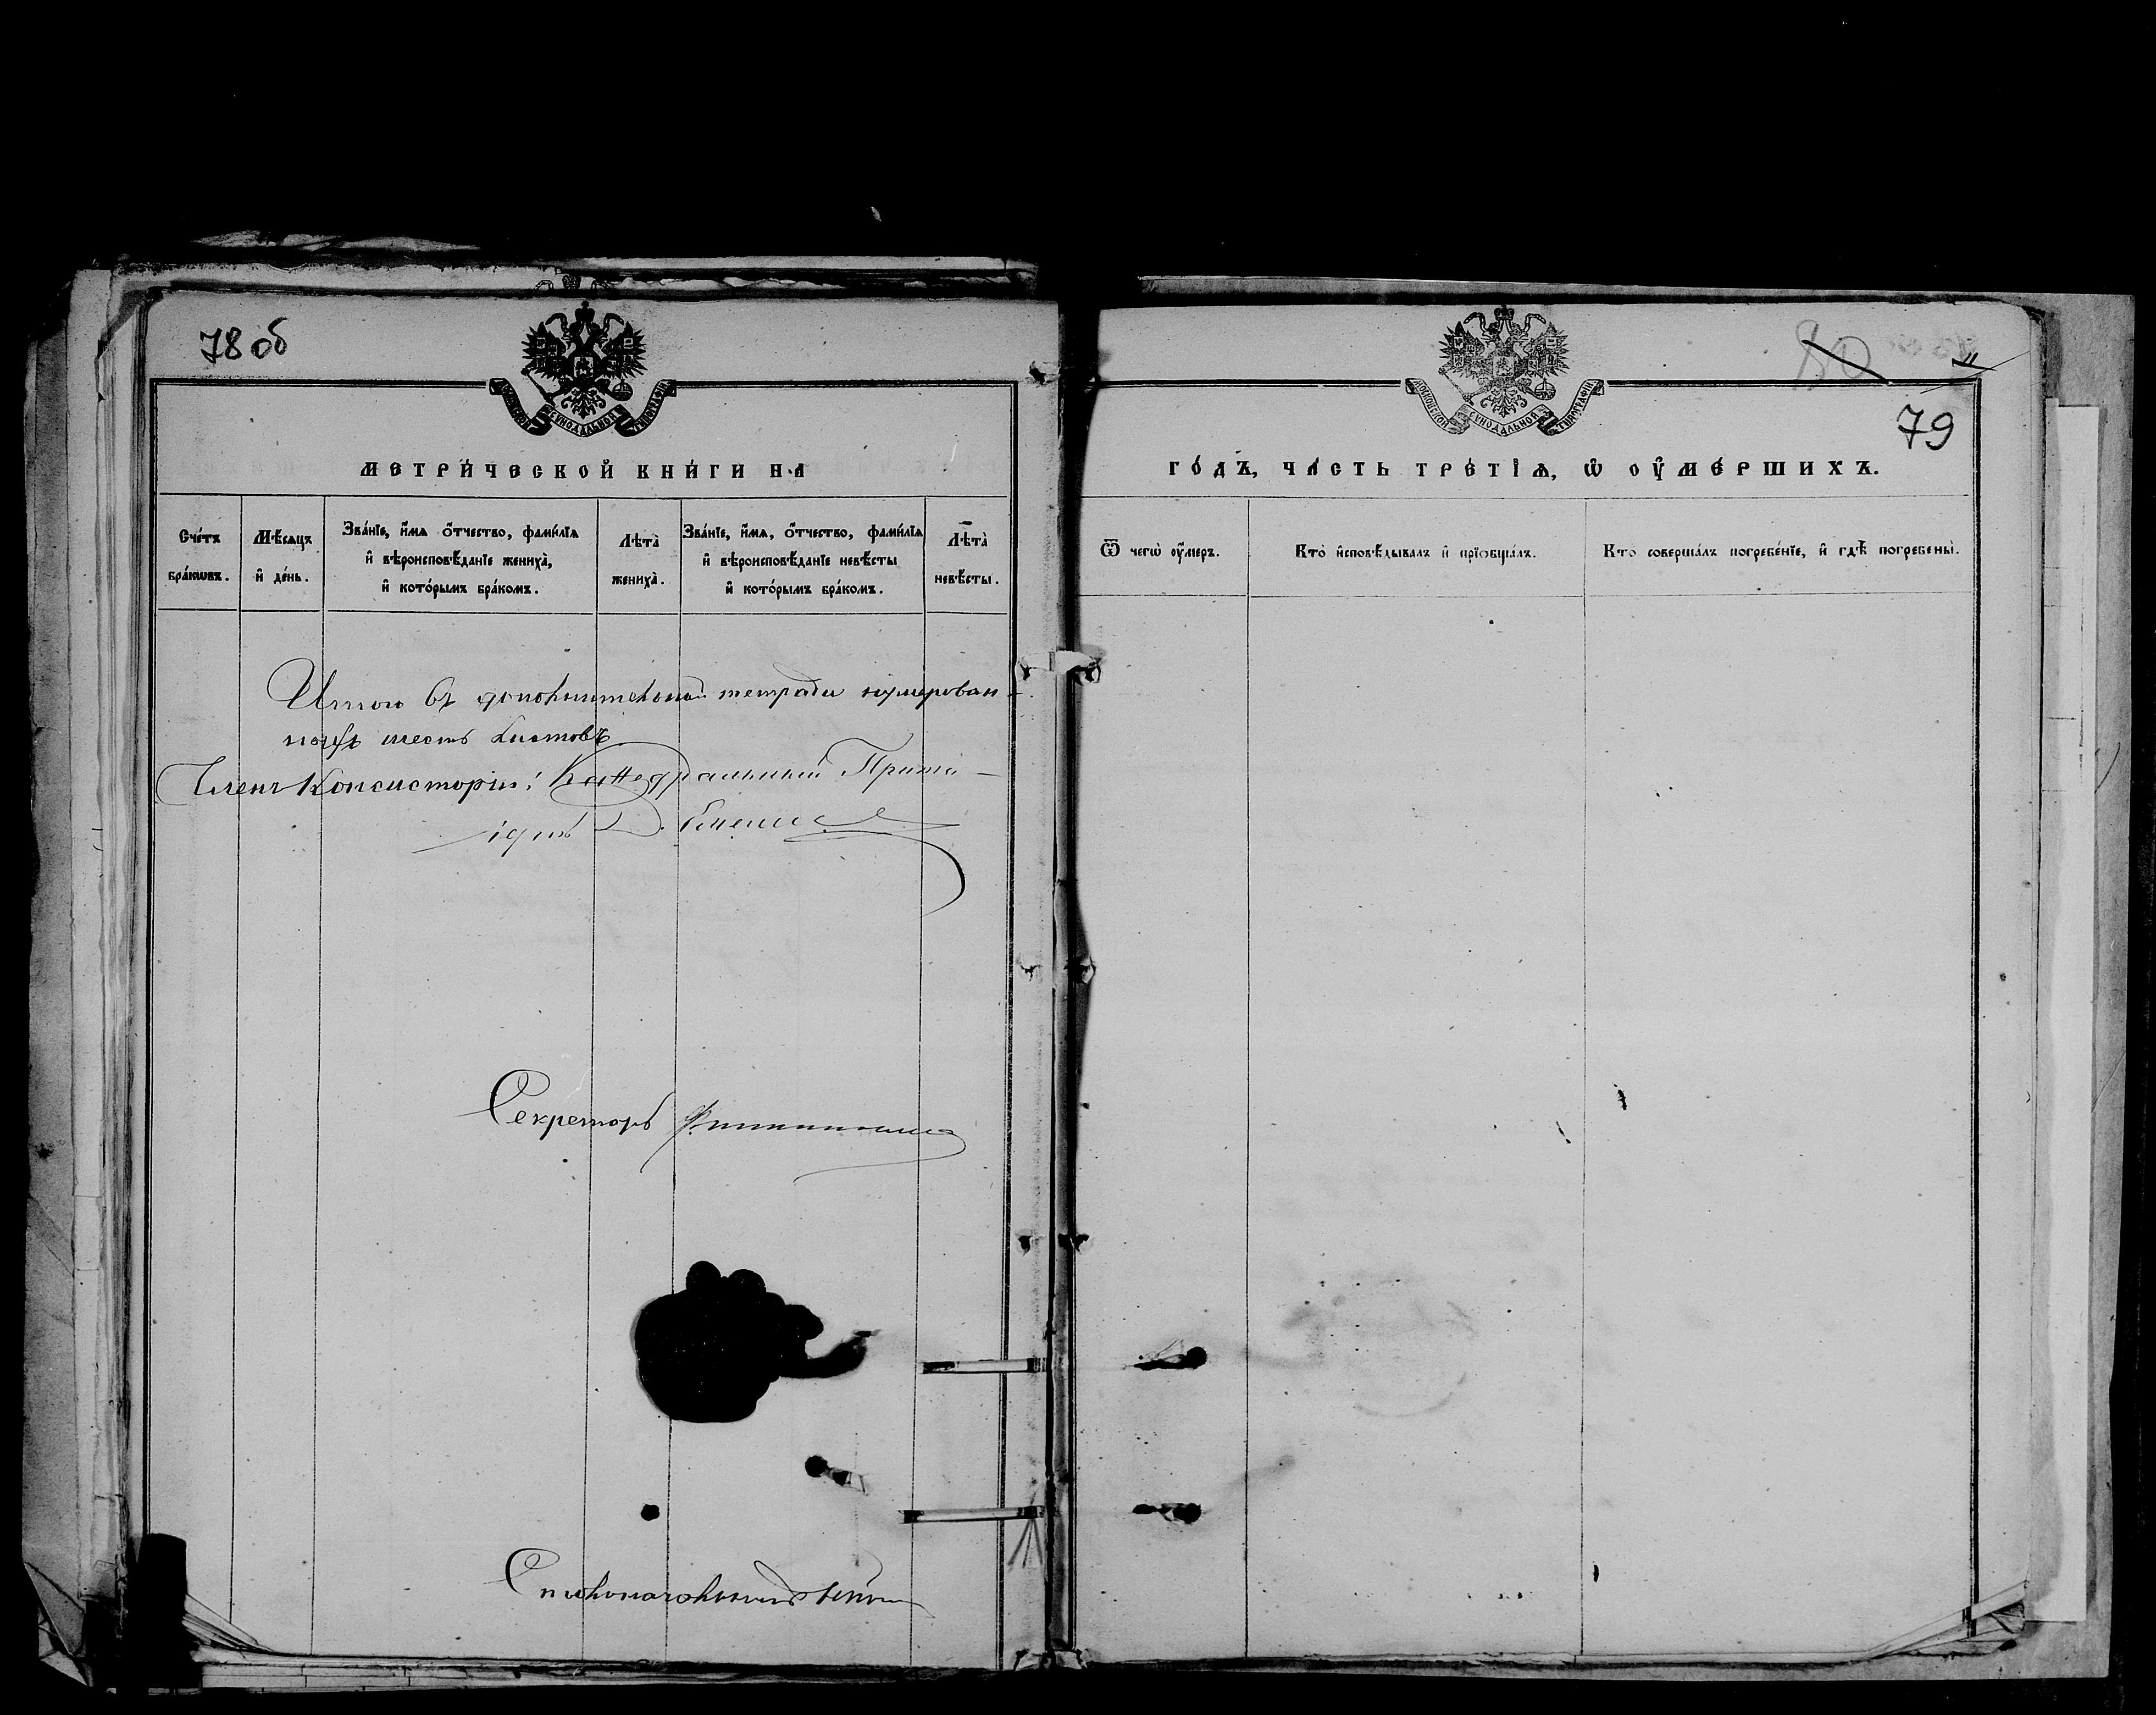 78 об
МОСКОВСКОЙ СѴНОДАЛЬНОЙ ТИПОГРАФІИ
МЕТРИ́ЧЕСКОЙ КНИ́ГИ НА
Сче́тъ бра́кωвъ.
Мѣ́сяцъ и҆ де́нь.
Зва́нїе, и҆́мѧ ѻ҆́тчество, фами́лїѧ
и҆ вѣроисповѣ́данїе жениха̀,
и҆ кото́рымъ бра́комъ.
Лѣта̀ жениха̀.
Зва́нїе, и҆́мѧ, ѻ҆́тчество, фамилїѧ
и҆ вѣроисповѣ́данїе невѣ́сты
и҆ кото́рымъ бра́комъ.
Лѣта̀ невѣ́сты.
Итого въ дополнительной тетради нумерован-
ныхъ шесть листовъ
Членъ Консисторіи: Каѳедральный Прото-
іерей
Секретарь
Столоначальникъ
80
79
МОСКОВСКОЙ СѴНОДАЛЬНОЙ ТИПОГРАФІИ
ГО́ДЪ, ЧА́СТЬ ТРЕ́ТІѦ, Ѡ҆ ОУ҆МЕ́РШИХЪ.
Ѿ чегѡ̀ оу҆́меръ.
Кто̀ и҆сповѣ́дывалъ и҆ прїѡбща́лъ.
Кто̀ соверша́лъ погребе́нїе, и҆ гдѣ̀ погребены̀.